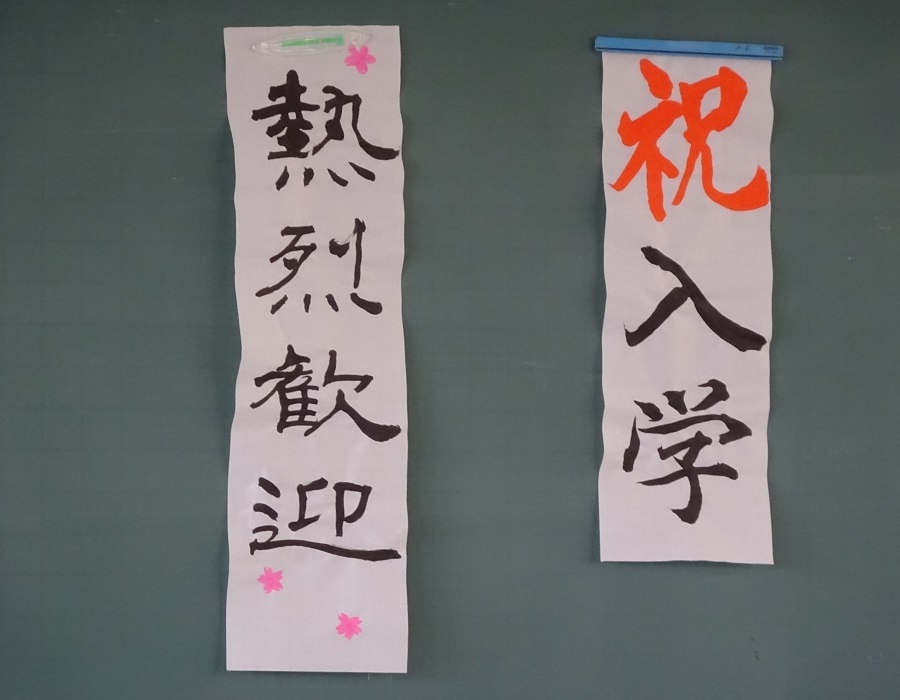 祝入学
熱烈歓迎